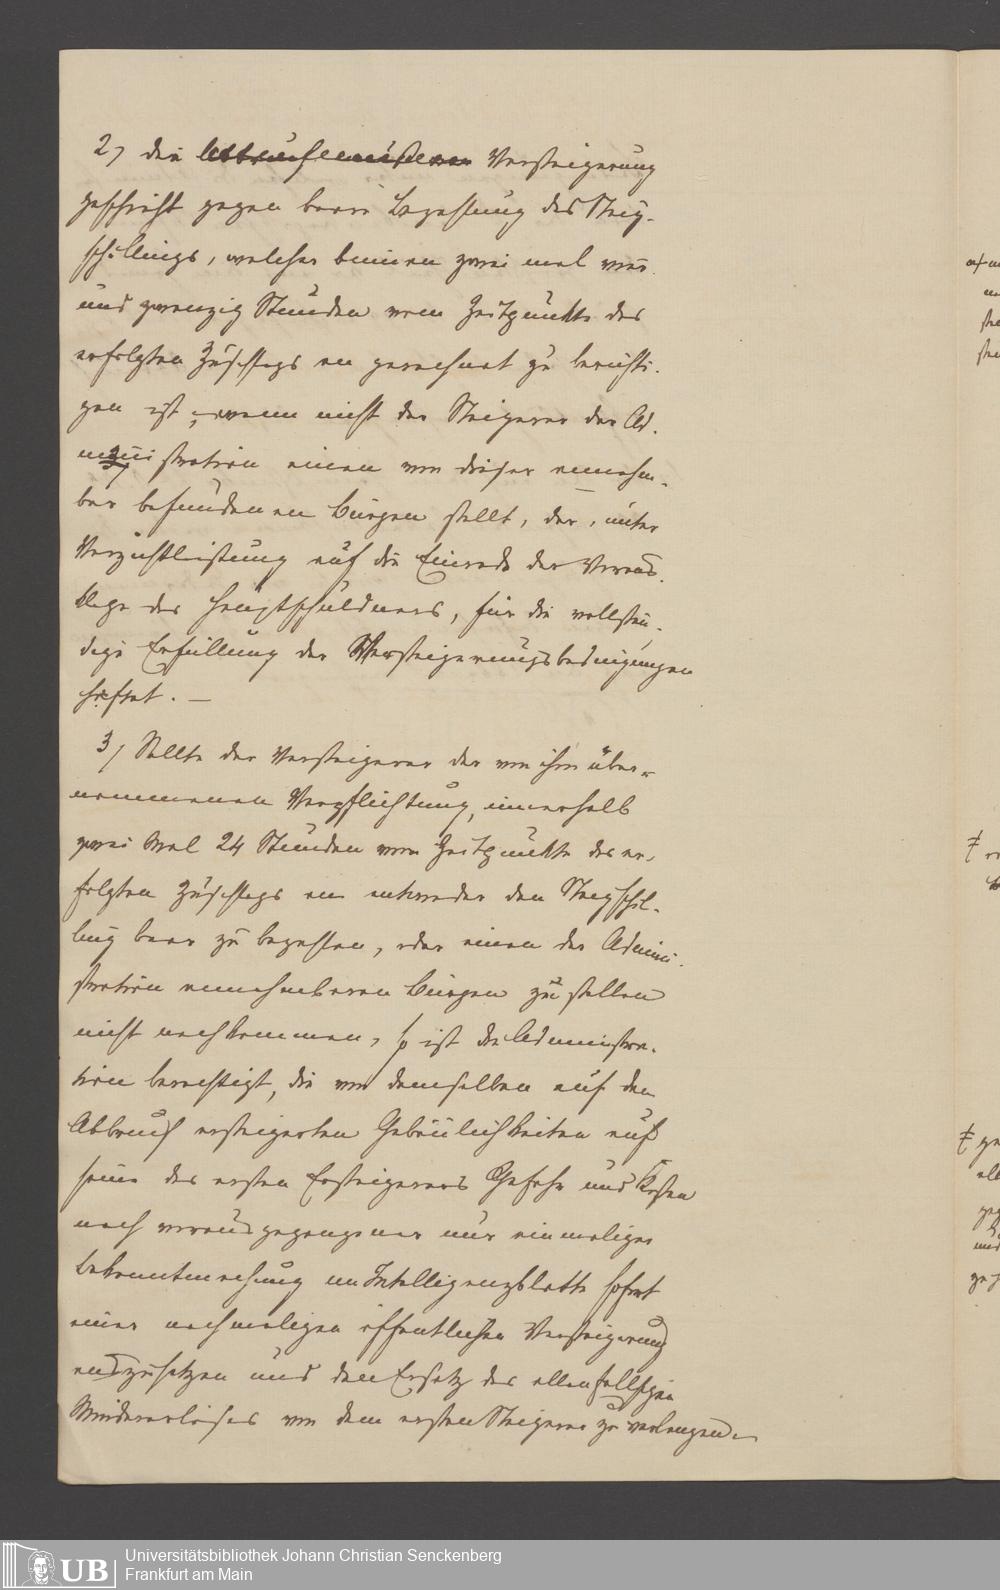 2) die Versteigerung
geschieht gegen baare Bezahlung des Steig-
schillings, welcher binnen zwei mal vier
und zwanzig Stunden vom Zeitpunkte des
erfolgten Zuschlags an gerechnet zu berichti-
gen ist, wenn nicht der Steigerer der Ad-
ministration einen von dieser annehm-
bar befundenen Bürgen stellt, der, unter
Verzichtleistung auf die Einrede der Voraus-
klage des Hauptschuldners, für die vollstän-
dige Erfüllung der Versteigerungsbedingungen
haftet. —
3) Sollte der Versteigerer der von ihm über-
nommenen Verpflichtung, innerhalb
zwei Mal 24 Stunden vom Zeitpunkte des er-
folgten Zuschlags an entweder den Steigschil-
ling baar zu bezahlen, oder einen der Admini-
stration annehmbaren Bürgen zu stellen
nicht nachkommen, so ist die Administra-
tion berechtigt, die von demselben auf den
Abbruch ersteigerten Gebäulichkeiten auf
seine des ersten Ersteigerers Gefahr und Kosten
nach vorausgegangener nur einmaliger
Bekanntmachung im Intelligenzblatte sofort
einer nochmaligen öffentlichen Versteigerung
auszusetzen und den Ersatz des allenfallsigen
Mindererlöses von dem ersten Steigerer zu verlangen. —
Universitätsbibliothek Johann Christian Senckenberg
Frankfurt am Main
UB